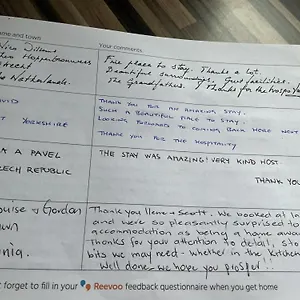 me and town
Your comments
Fine place to stay. Thanks a lot.
Beautiful surroundings, Good facilities.
The Grandfathers. Thanks for the hospital
Netherlands.
VID
THANK YOU FOR AN AMAZING STAY.
SUCH A BEAUTIFUL PLACE TO STAY.
LOOKING FORWARD TO COMING BACK MORE NEXT
YORKSHIRE
THANK YOU FOR THE HOSPITALITY
A A PAVEL
THE STAY WAS AMAZING! VERY KIND HOST.
ZECH REPUBLIC
THANK YOU
ouise & Gordon
Thank you Ilene & Scott. We booked at la
wn
and were so pleasantly surprised to
accommodation as being a home awa
Thanks for your attention to detail, sto
nia.
bits we may need - whether in the kitchen
Well done we hope you prosper!!
t forget to fill in your Reevoo feedback questionnaire when you get home